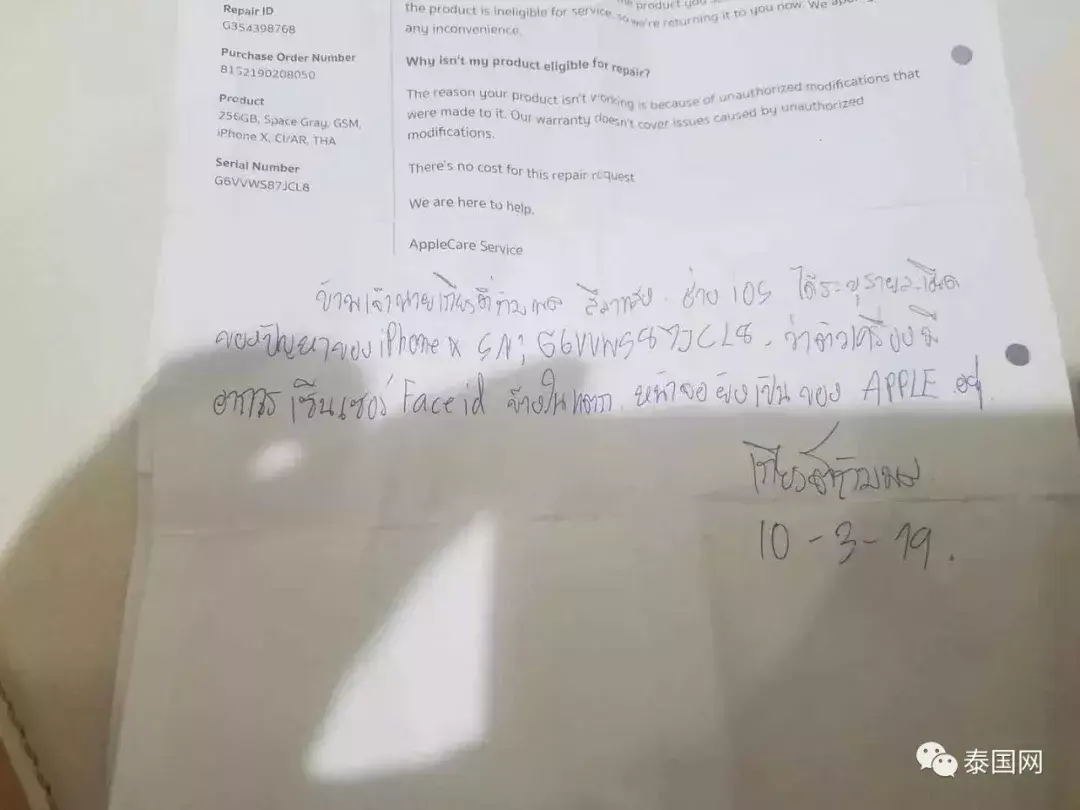 Repair ID
G354398768
Purchase Order Number
8152190208050
Product
256GB, Space Gray, GSM,
iPhone X, CI/AR, THA
Serial Number
G6VVWS87JCL8
the product you
the product is ineligible for service, so we're returning it to you now. We
any inconvenience.
Why isn't my product eligible for repair?
The reason your product isn't working is because of unauthorized modifications that
were made to it. Our warranty doesn't cover issues caused by unauthorized
modifications.
There's no cost for this repair request
We are here to help.
AppleCare Service
ช่าง iOS ได้ระบุรายละเอียด
ของปัญหาของ iPhone X SN; G6VVWS87JCL8. ว่าตัวเครื่องมี
อาการ เซ็นเซอร์ Face id ข้างในแตก หน้าจอยังเป็นของ APPLE อยู่.
10-3-19.
泰国网